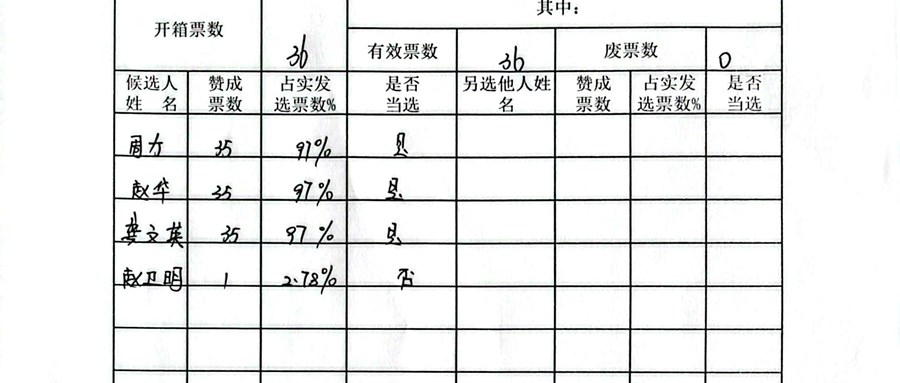 其中：
开箱票数 36 有效票数 36 废票数 0
候选人姓名 赞成票数 占实发选票数% 是否当选 另选他人姓名 赞成票数 占实发选票数% 是否当选
周力 35 97% 是
赵华 35 97% 是
龚文英 35 97% 是
赵卫明 1 2.78% 否